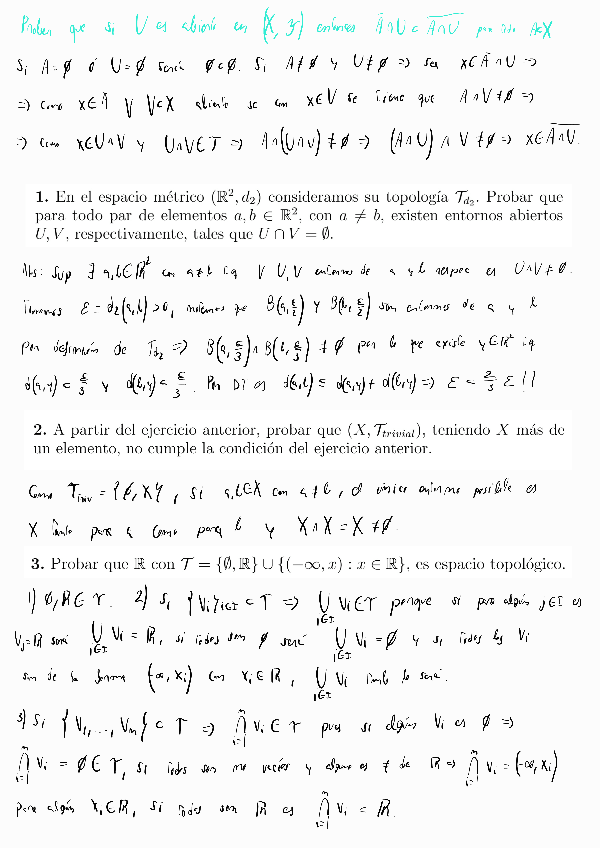 Probar que si U es abierto en (X, T) entonces Ā∩U ⊂ \overline{A∩U} para todo A⊂X
Si A=∅ ó U=∅ sería ∅⊂∅. Si A≠∅ y U≠∅ => sea x∈Ā∩U =>
=> como x∈Ā ∀ V⊂X abierto se con x∈V se tiene que A∩V≠∅ =>
=> como x∈U∩V y U∩V∈T => A∩(U∩V)≠∅ => (A∩U)∩V≠∅ => x∈\overline{A∩U}.
1. En el espacio métrico (ℝ², d₂) consideramos su topología 𝒯_{d₂}. Probar que
para todo par de elementos a, b ∈ ℝ², con a ≠ b, existen entornos abiertos
U, V, respectivamente, tales que U ∩ V = ∅.
Abs: Sup ∃ a,b∈ℝ² con a≠b tq ∀ U,V entorno de a y b respec es U∩V≠∅.
Tomamos ε=d₂(a,b)>0, notemos que B(a,ε/2) y B(b,ε/2) son entornos de a y b
por definición de T_{d₂} => B(a,ε/3)∩B(b,ε/3)≠∅ por lo que existe y∈ℝ² tq
d(a,y)<ε/3 y d(b,y)<ε/3. Por DT es d(a,b)≤d(a,y)+d(b,y) => ε<2/3 ε !!
2. A partir del ejercicio anterior, probar que (X, 𝒯_{trivial}), teniendo X más de
un elemento, no cumple la condición del ejercicio anterior.
Como T_{triv}={∅,X}, si a,b∈X con a≠b, el único entorno posible es
X tanto para a como para b y X∩X=X≠∅.
3. Probar que ℝ con 𝒯 = {∅, ℝ} ∪ {(−∞, x) : x ∈ ℝ}, es espacio topológico.
1) ∅,ℝ∈T. 2) Si {Vi}i∈I ⊂ T => ⋃_{i∈I} Vi∈T porque si para algún j∈I es
Vj=ℝ será ⋃_{i∈I} Vi=ℝ, si todos son ∅ será ⋃_{i∈I} Vi=∅ y si todos los Vi
son de la forma (-∞,xi) con xi∈ℝ, ⋃_{i∈I} Vi tmb lo será.
3) Si {V1,...,Vn}⊂T => ⋂_{i=1}^{n} Vi∈T pues si algún Vi es ∅ =>
⋂_{i=1}^{n} Vi=∅∈T, si todos son no vacíos y alguno es ≠ de ℝ => ⋂_{i=1}^{n} Vi=(-∞,xi)
para algún xi∈ℝ, si todos son ℝ es ⋂_{i=1}^{n} Vi=ℝ.